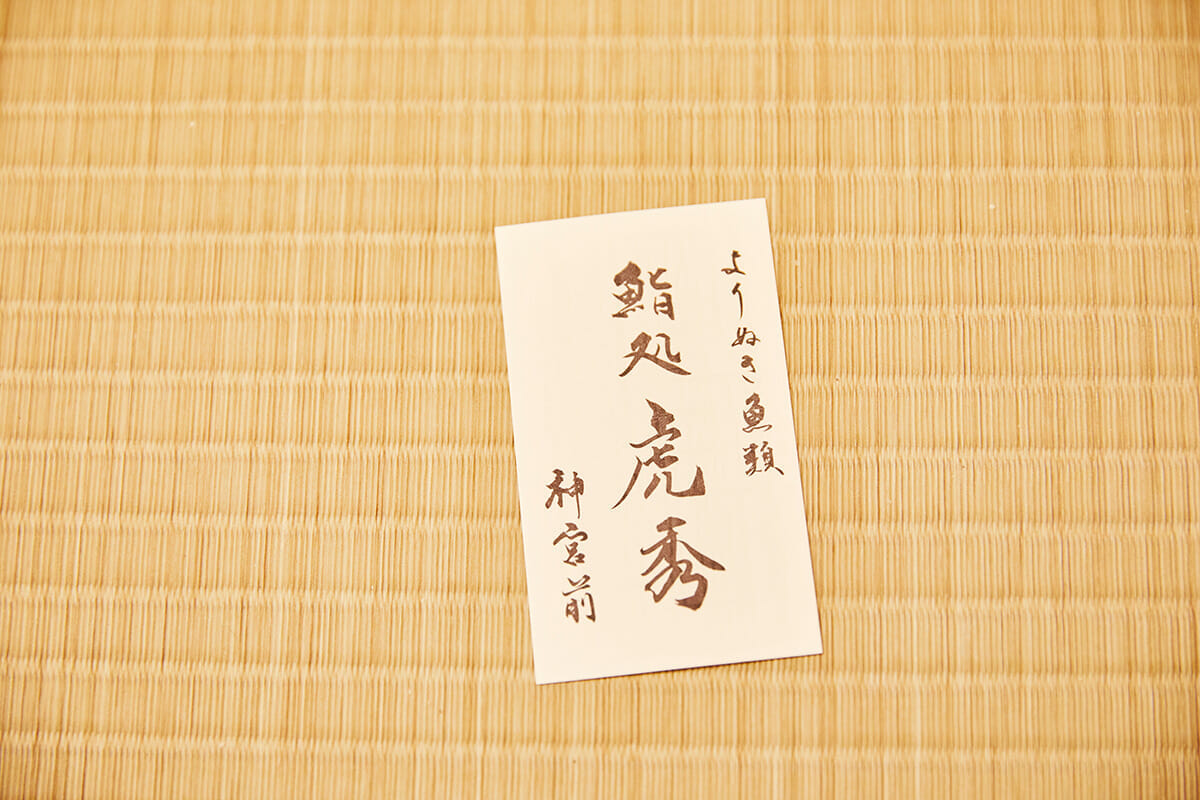 よりぬき魚類
鮨処 虎秀
神宮前